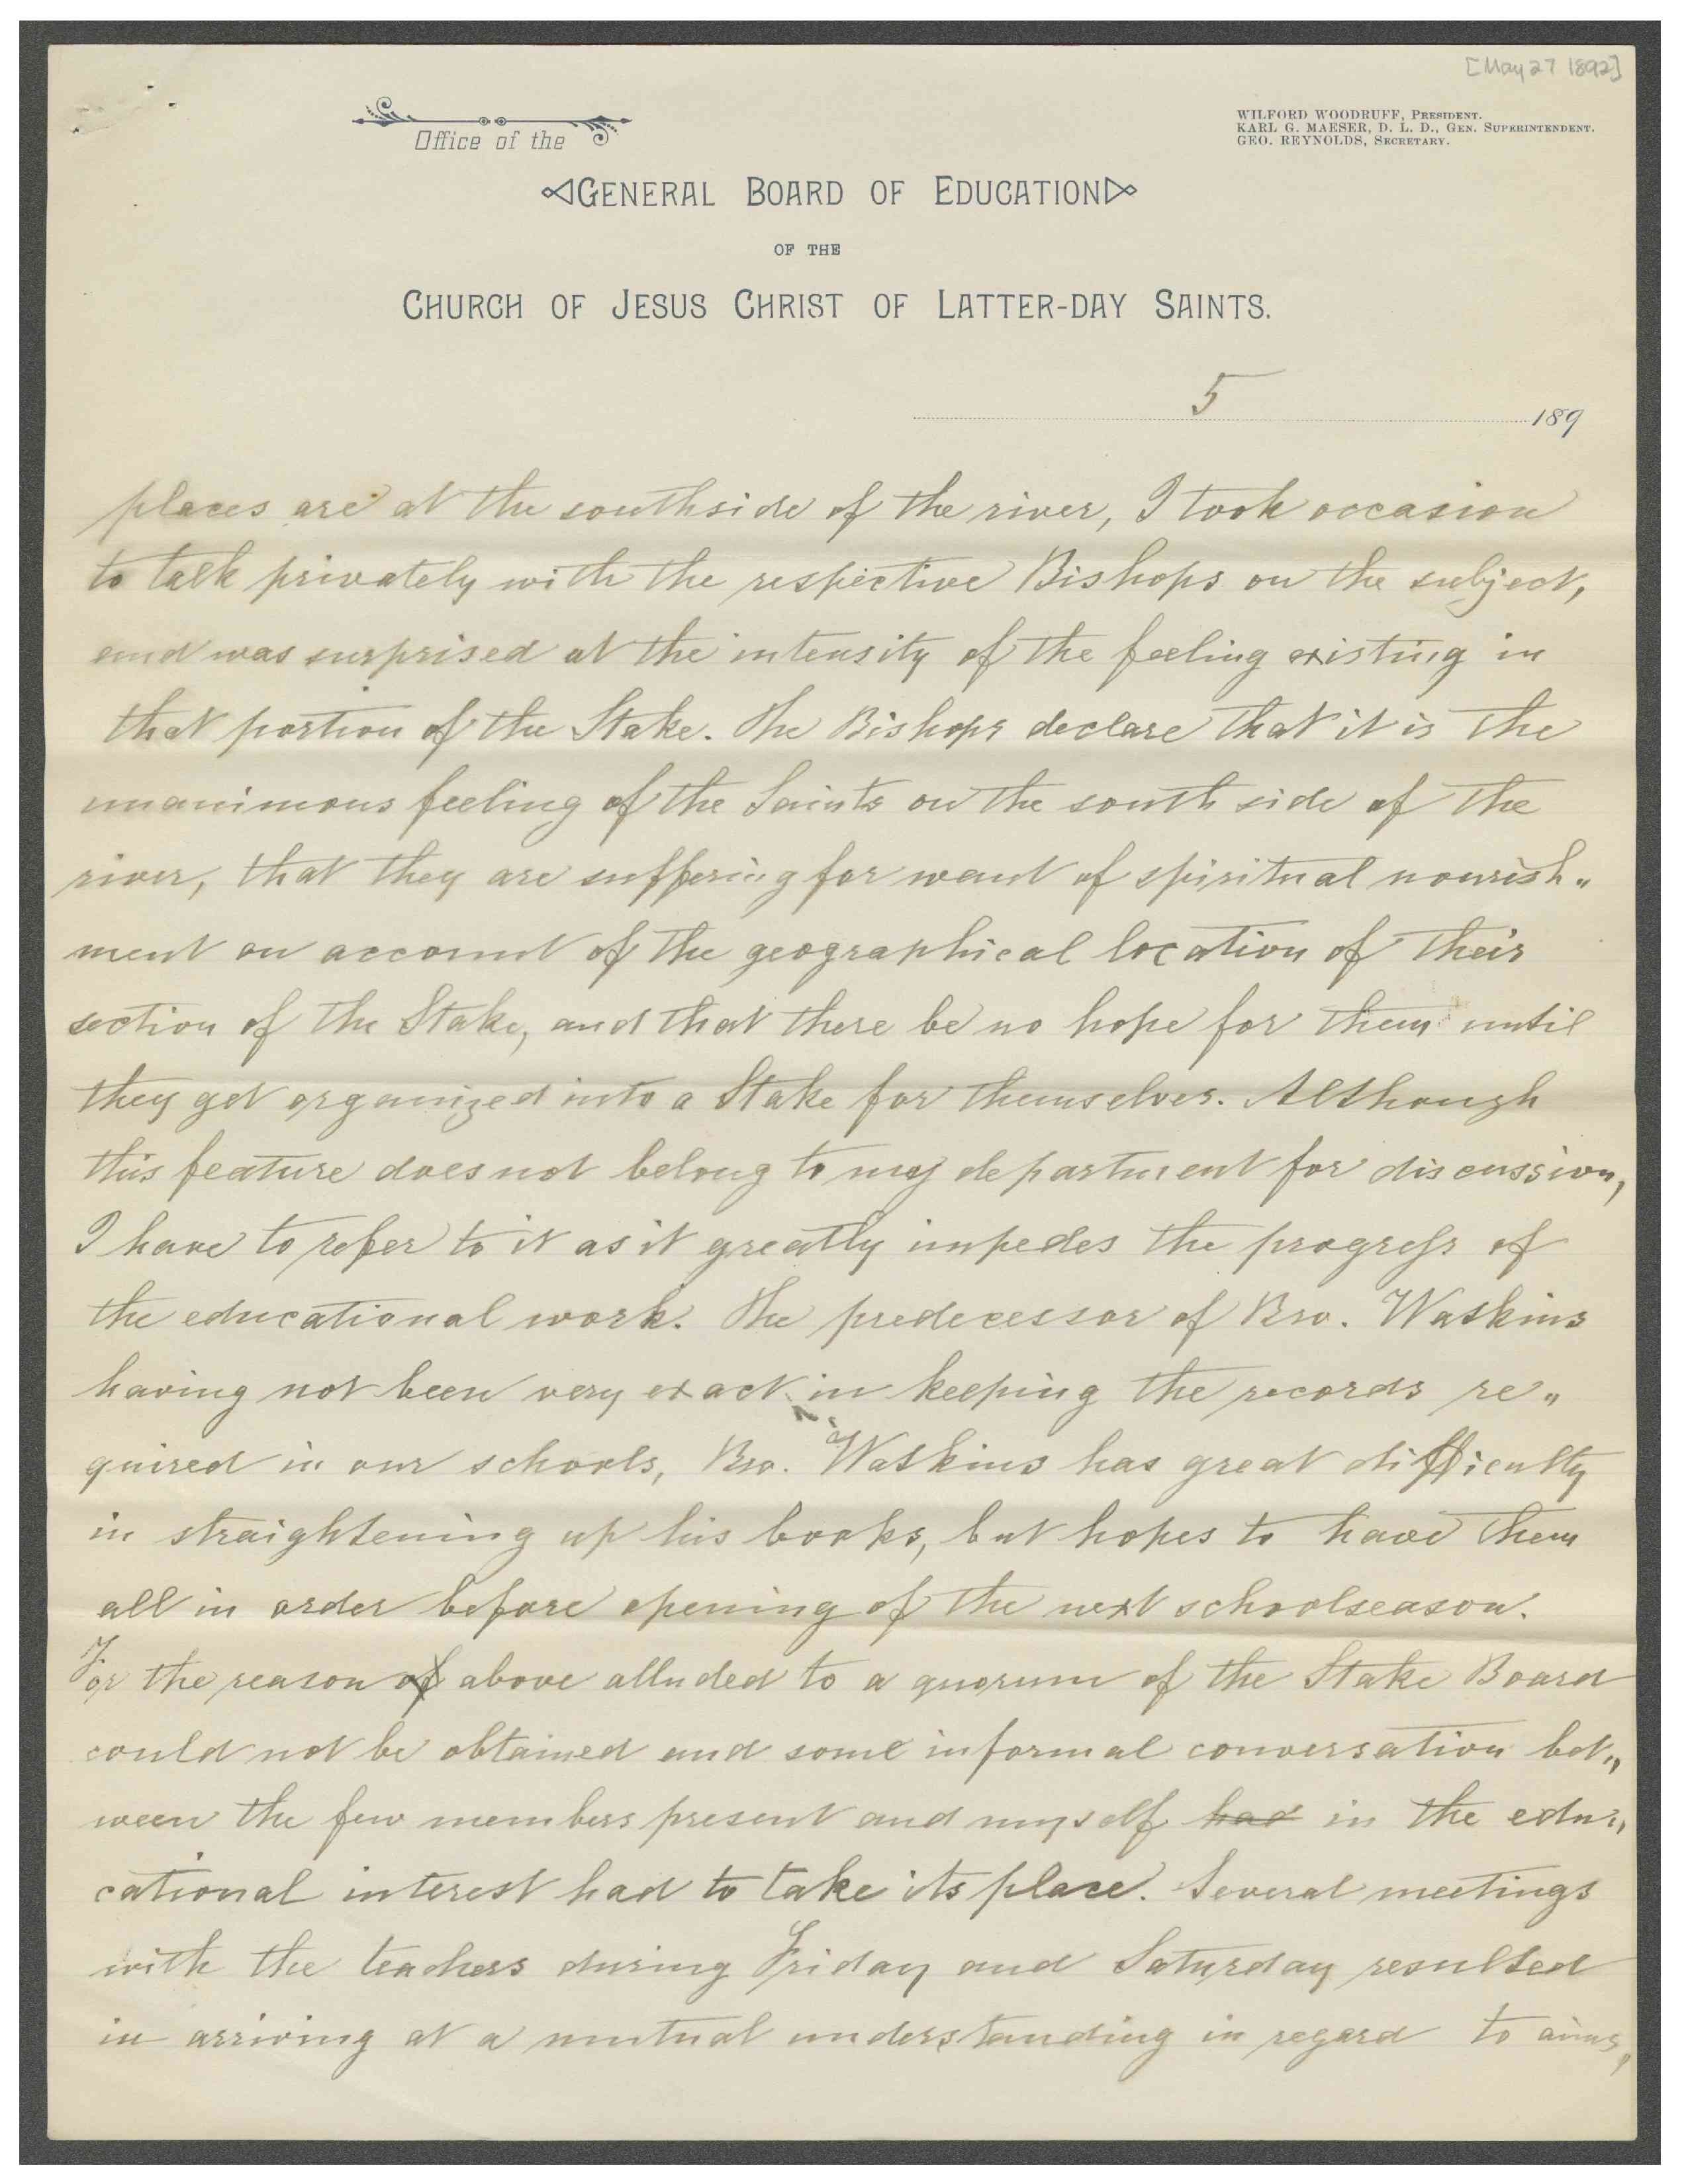 [May 27 1892]
WILFORD WOODRUFF, PRESIDENT.
KARL G. MAESER, D. L. D., GEN. SUPERINTENDENT.
GEO. REYNOLDS, SECRETARY.
Office of the
GENERAL BOARD OF EDUCATION
OF THE
CHURCH OF JESUS CHRIST OF LATTER-DAY SAINTS.
5 189
places are at the southside of the river, I took occasion
to talk privately with the respective Bishops on the subject,
and was surprised at the intensity of the feeling existing in
that portion of the Stake. The Bishops declare that it is the
unanimous feeling of the Saints on the south side of the
river, that they are suffering for want of spiritual nourish„
ment on account of the geographical location of their
section of the Stake, and that there be no hope for them until
they get organized into a Stake for themselves. Although
this feature does not belong to my department for discussion,
I have to refer to it as it greatly impedes the progress of
the educational work. The predecessor of Bro. Watkins
having not been very exact in keeping the records re„
quired in our schools, Bro. Watkins has great difficulty
in straightening up his books, but hopes to have them
all in order before opening of the next schoolseason.
For the reason of above alluded to a quorum of the Stake Board
could not be obtained and some informal conversation bet„
ween the few members present and myself had in the edu„
cational interest had to take its place. Several meetings
with the teachers during Friday and Saturday resulted
in arriving at a mutual understanding in regard to aims,